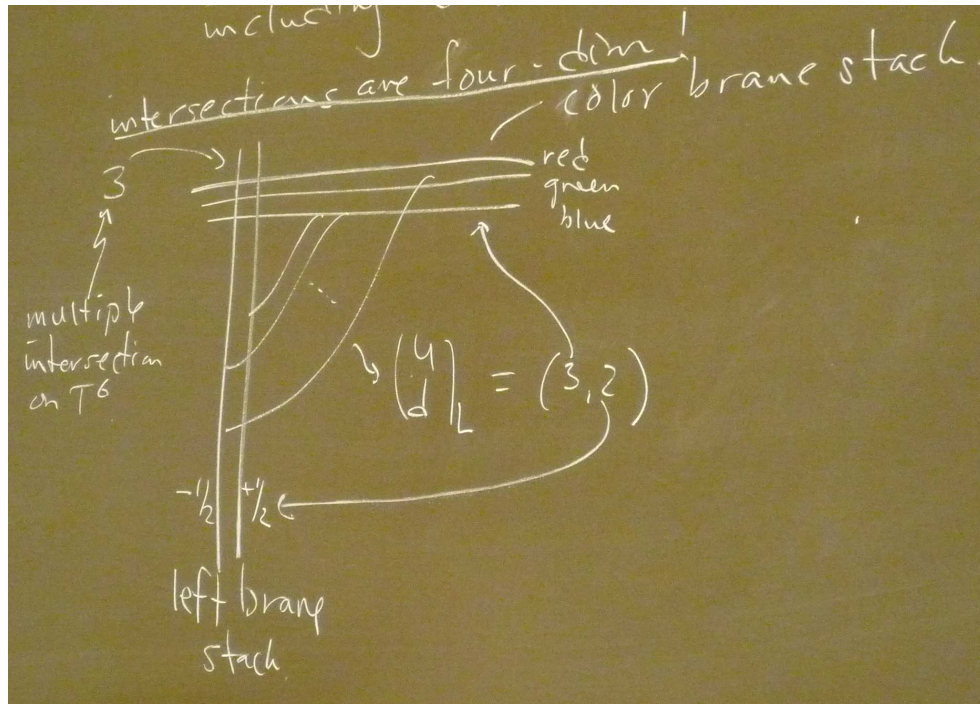 including
intersections are four-dim!
color brane stack.
3
red
green
blue
multiple
intersection
on T⁶
(u d)_L = (3,2)
-1/2 +1/2
left brane
stack